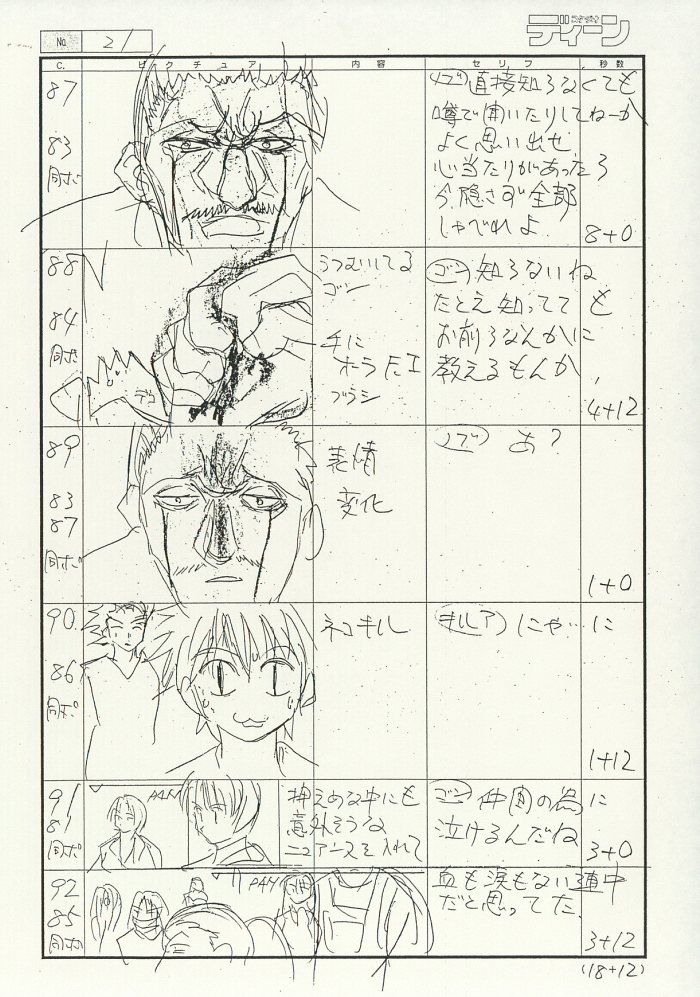 No. 21
スタジオ
ディーン
C. ピクチュア 内容 セリフ 秒数
87
83
同ポ
ノブ 直接知らなくても
噂で聞いたりしてねーか
よく思い出せ
心当たりがあったら
今、隠さず全部
しゃべれよ
8+0
88
84
同ポ
デコ
うつむいてる
ゴン
手に
オーラ F.I
ブラシ
ゴン 知らないね
たとえ知ってても
お前らなんかに
教えるもんか
4+12
89
83
87
同ポ
表情
変化
ノブ あ?
1+0
90
86
同ポ
ネコキル
キルア にゃ…に
1+12
91
81
同ポ
PAN
抑えめな中にも
意外そうな
ニュアンスを入れて
ゴン 仲間の為に
泣けるんだね
3+0
92
85
同ポ
PAN
血も涙もない連中
だと思ってた
3+12
(18+12)